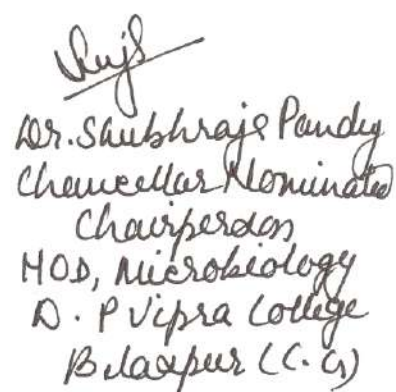 Dr. Shubhraje Pandey
Chancellor Nominated
Chairperson
HOD, Microbiology
D. P Vipra College
Bilaspur (C.G)